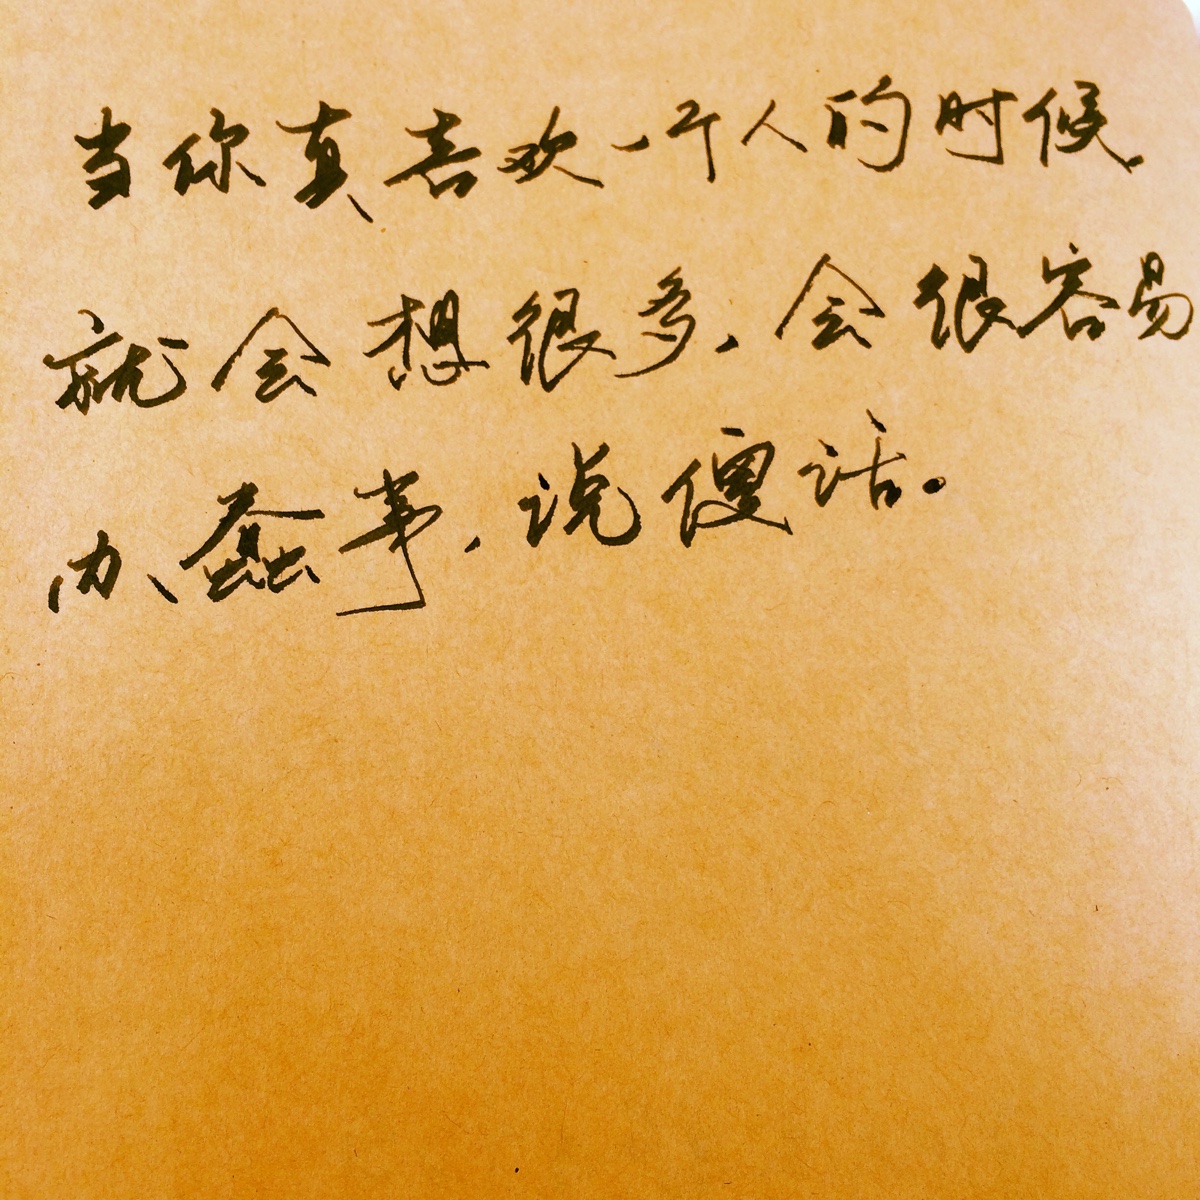 当你真喜欢一个人的时候，
就会想很多，会很容易
办蠢事，说傻话。